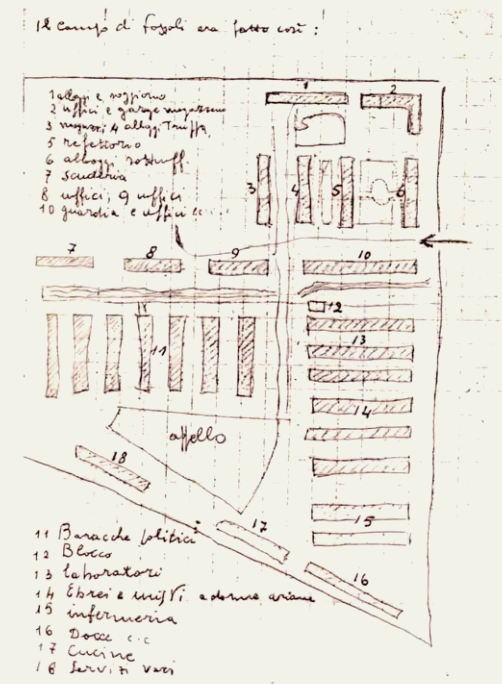 Il campo di Fossoli era fatto così:
1 alloggi e soggiorno
2 uffici e garage magazzino
3 magazzi 4 alloggi Truffa
5 refettorio
6 alloggi sottuff.
7 scuderia
8 uffici; 9 uffici
10 guardia e uffici
1
2
3
4
5
6
7
8
9
10
12
11
13
14
appello
18
17
15
16
11 Baracche politici
12 Blocco
13 laboratori
14 Ebrei e misti e donne ariane
15 infermeria
16 Docce c.c
17 Cucine
18 Servizi vari